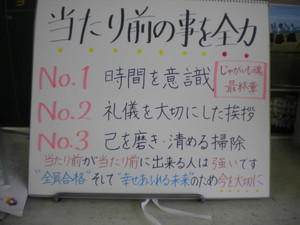 当たり前の事を全力
じゃがいも魂
最終章
No.1 時間を意識
No.2 礼儀を大切にした挨拶
No.3 己を磨き・清める掃除
当たり前が当たり前に出来る人は強いです
"全員合格"そして"幸せあふれる未来"のため今を大切に